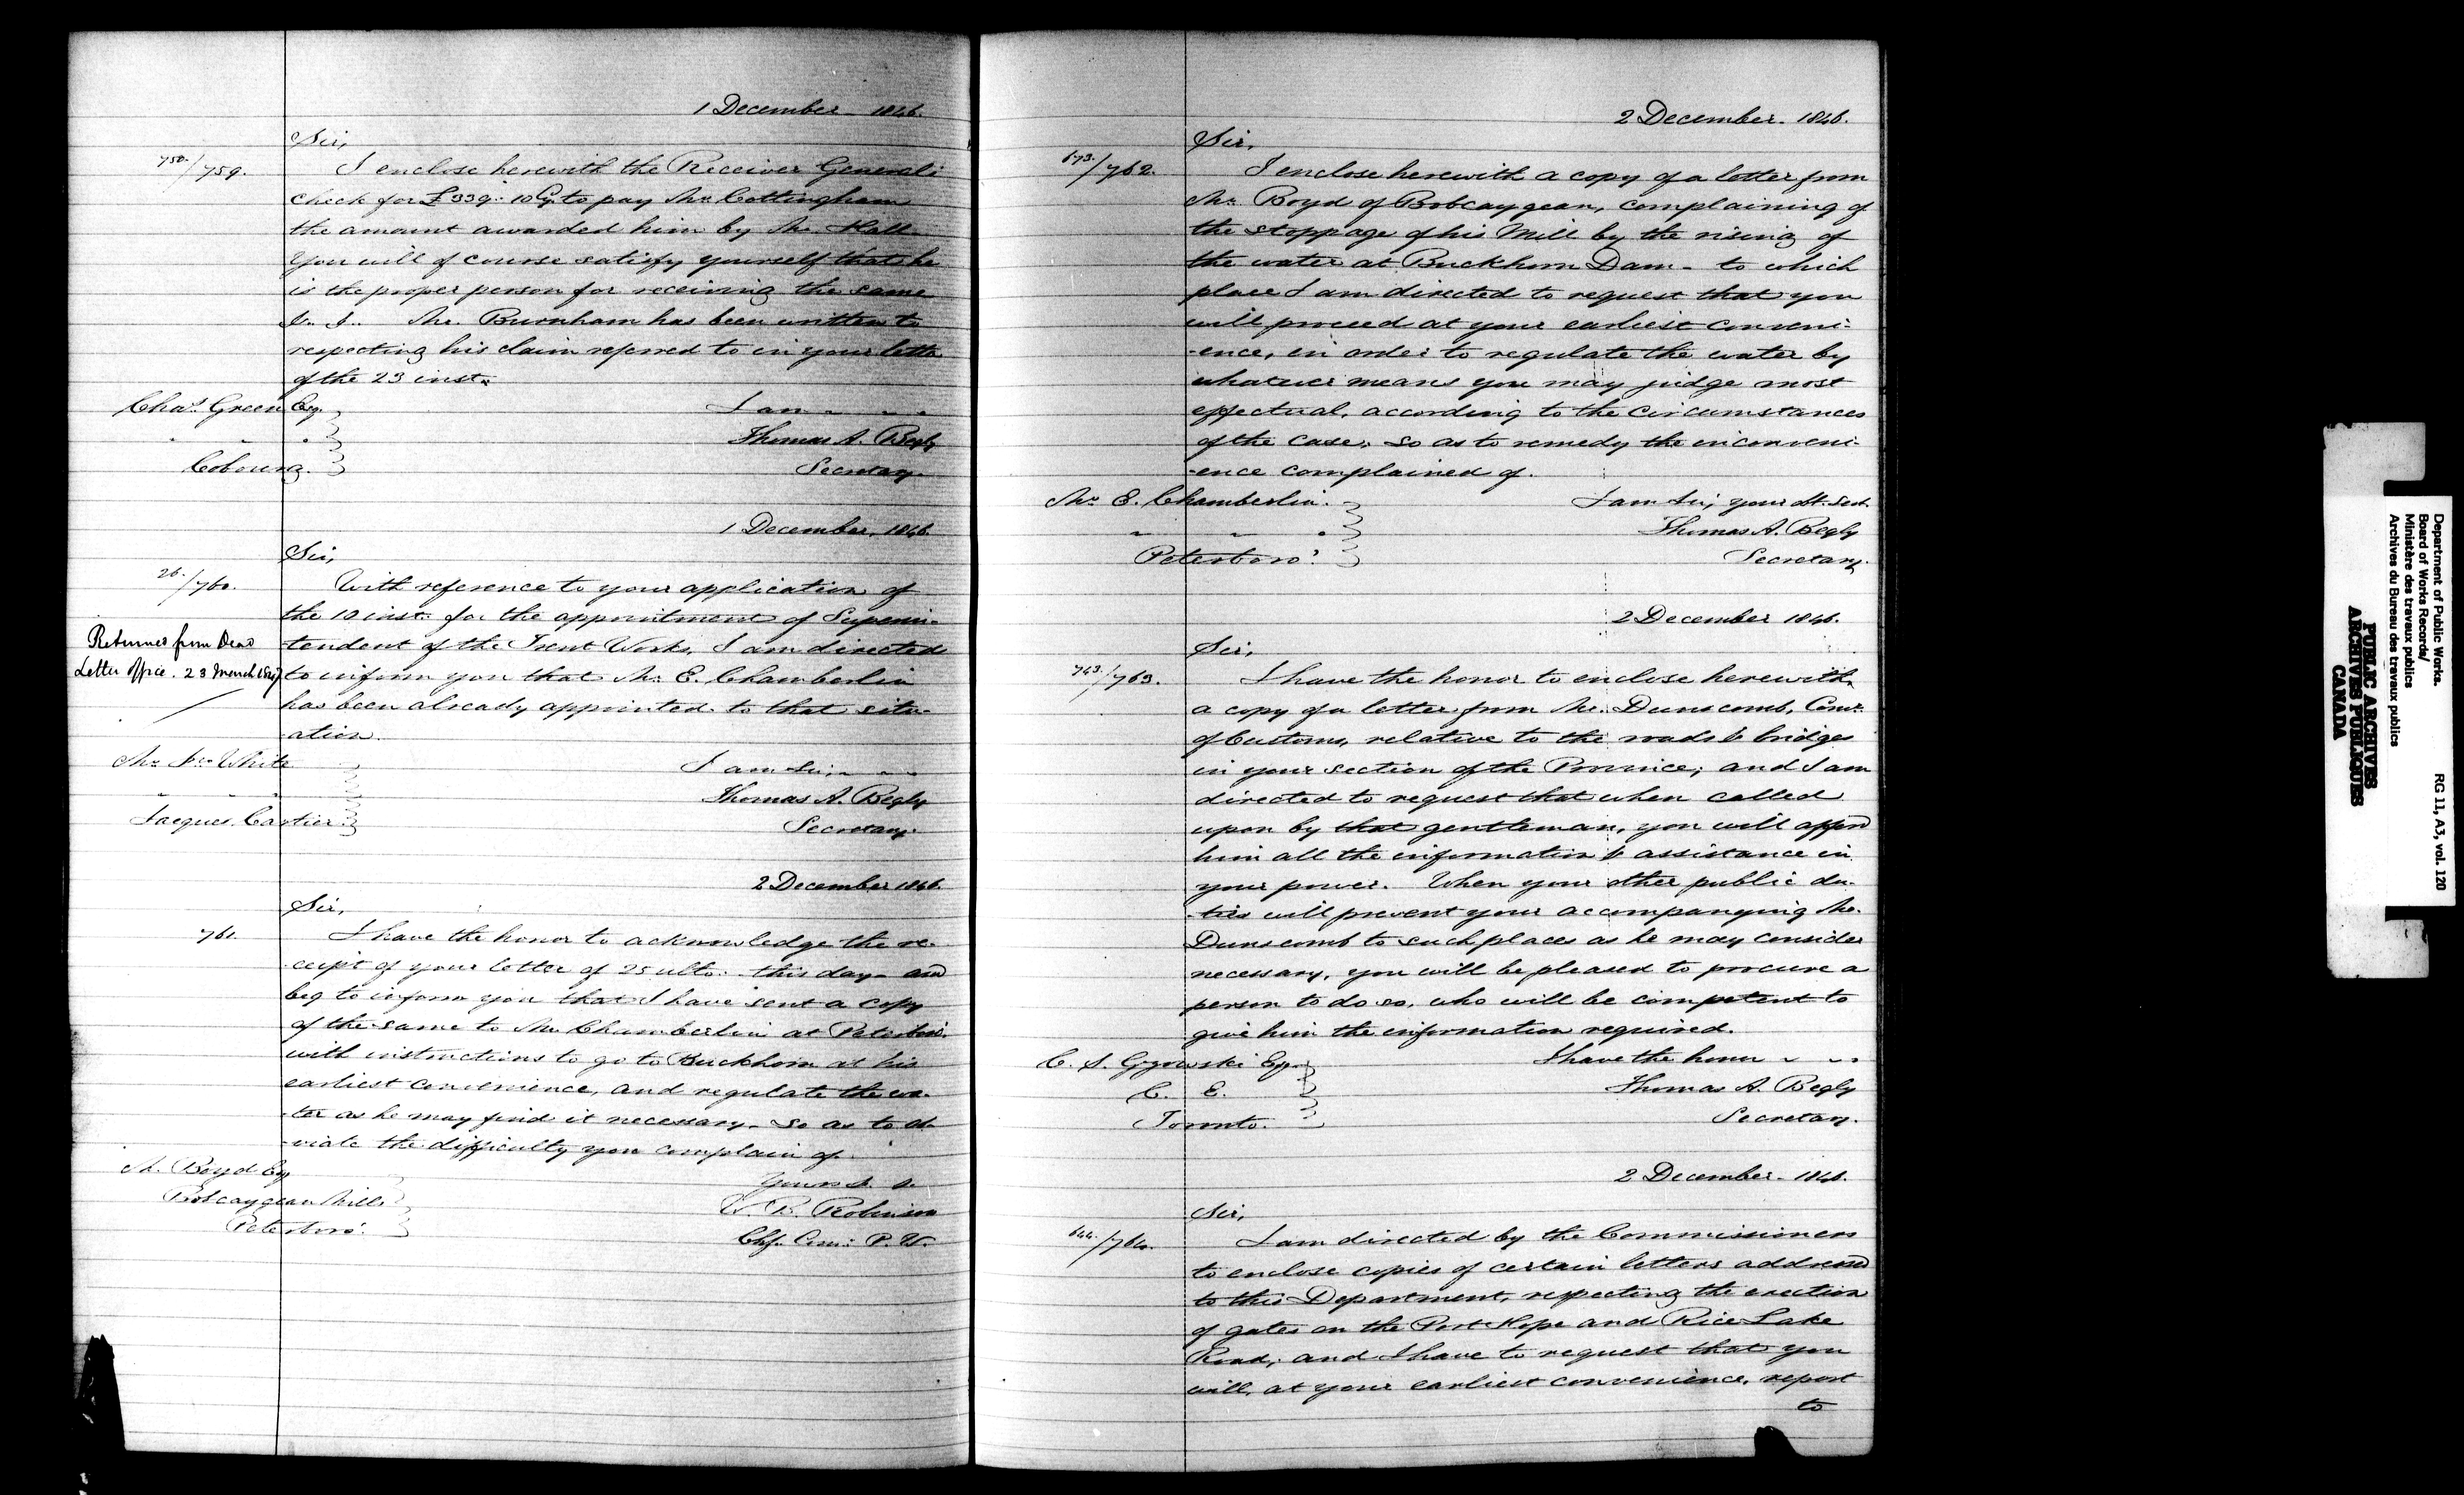 1 December - 1846.
Sir,
750./759.
I enclose herewith the Receiver General's
check for £339.. 10 Cy. to pay Mr. Cottingham
the amount awarded him by Mr. Hall.
You will of course satisfy yourself that he
is the proper person for receiving the same
Mr. Burnham has been written to
respecting his claim referred to in your letter
of the 23 inst.
Chas. Green Esq.
I am - - -
" " "
Thomas A. Begly
Cobourg.
Secretary.
1 December, 1846.
Sir,
26./760.
With reference to your application of
the 10 inst. for the appointment of Superin-
Returned from Dead
tendent of the Trent Works, I am directed
Letter Office. 23 March 1847
to inform you that Mr. E. Chamberlin
has been already appointed to that situ-
ation.
Mr. Jno. White
I am Sir, - - -
" " "
Thomas A. Begly
Jacques Cartier.
Secretary.
2 December 1846.
Sir,
761.
I have the honor to acknowledge the re-
ceipt of your letter of 25 ulto. this day - and
beg to inform you that I have sent a copy
of the same to Mr. Chamberlin at Peterboro'.
with instructions to go to Buckhorn at his
earliest convenience, and regulate the wa-
ter as he may find it necessary - so as to ob-
viate the difficulty you complain of.
M. Boyd Esq
Yours &. &.
Bobcaygean Mills
W. B. Robinson
Peterboro'.
Chf. Com: P. W.
2 December - 1846.
Sir,
673./762.
I enclose herewith a copy of a letter from
Mr. Boyd of Bobcaygean, complaining of
the stoppage of his Mill by the rising of
the water at Buckhorn Dam - to which
place I am directed to request that you
will proceed at your earliest conveni-
-ence, in order to regulate the water by
whatever means you may judge most
effectual, according to the circumstances
of the case, so as to remedy the inconveni-
-ence complained of.
Mr. E. Chamberlin.
I am Sir, your ob. Sert.
" " "
Thomas A. Begly
Peterboro'.
Secretary.
2 December 1846.
Sir,
743./763.
I have the honor to enclose herewith,
a copy of a letter from Mr. Dunscomb, Comr.
of Customs, relative to the roads & bridges
in your section of the Province; and I am
directed to request that when called
upon by that gentleman, you will afford
him all the information & assistance in
your power. When your other public du-
-ties will prevent your accompanying Mr.
Dunscomb to such places as he may consider
necessary, you will be pleased to procure a
person to do so, who will be competent to
give him the information required.
C. S. Gzowski Esq.
I have the honor - - -
C. E.
Thomas A. Begly
Toronto.
Secretary.
2 December - 1846.
Sir,
644./764.
I am directed by the Commissioners
to enclose copies of certain letters addressed
to this Department, respecting the erection
of gates on the Port Hope and Rice Lake
Road; and I have to request that you
will, at your earliest convenience, report
to
Department of Public Works.
Board of Works Records/
Ministère des travaux publics
Archives du Bureau des travaux publics
RG 11, A3, vol. 120
PUBLIC ARCHIVES
ARCHIVES PUBLIQUES
CANADA